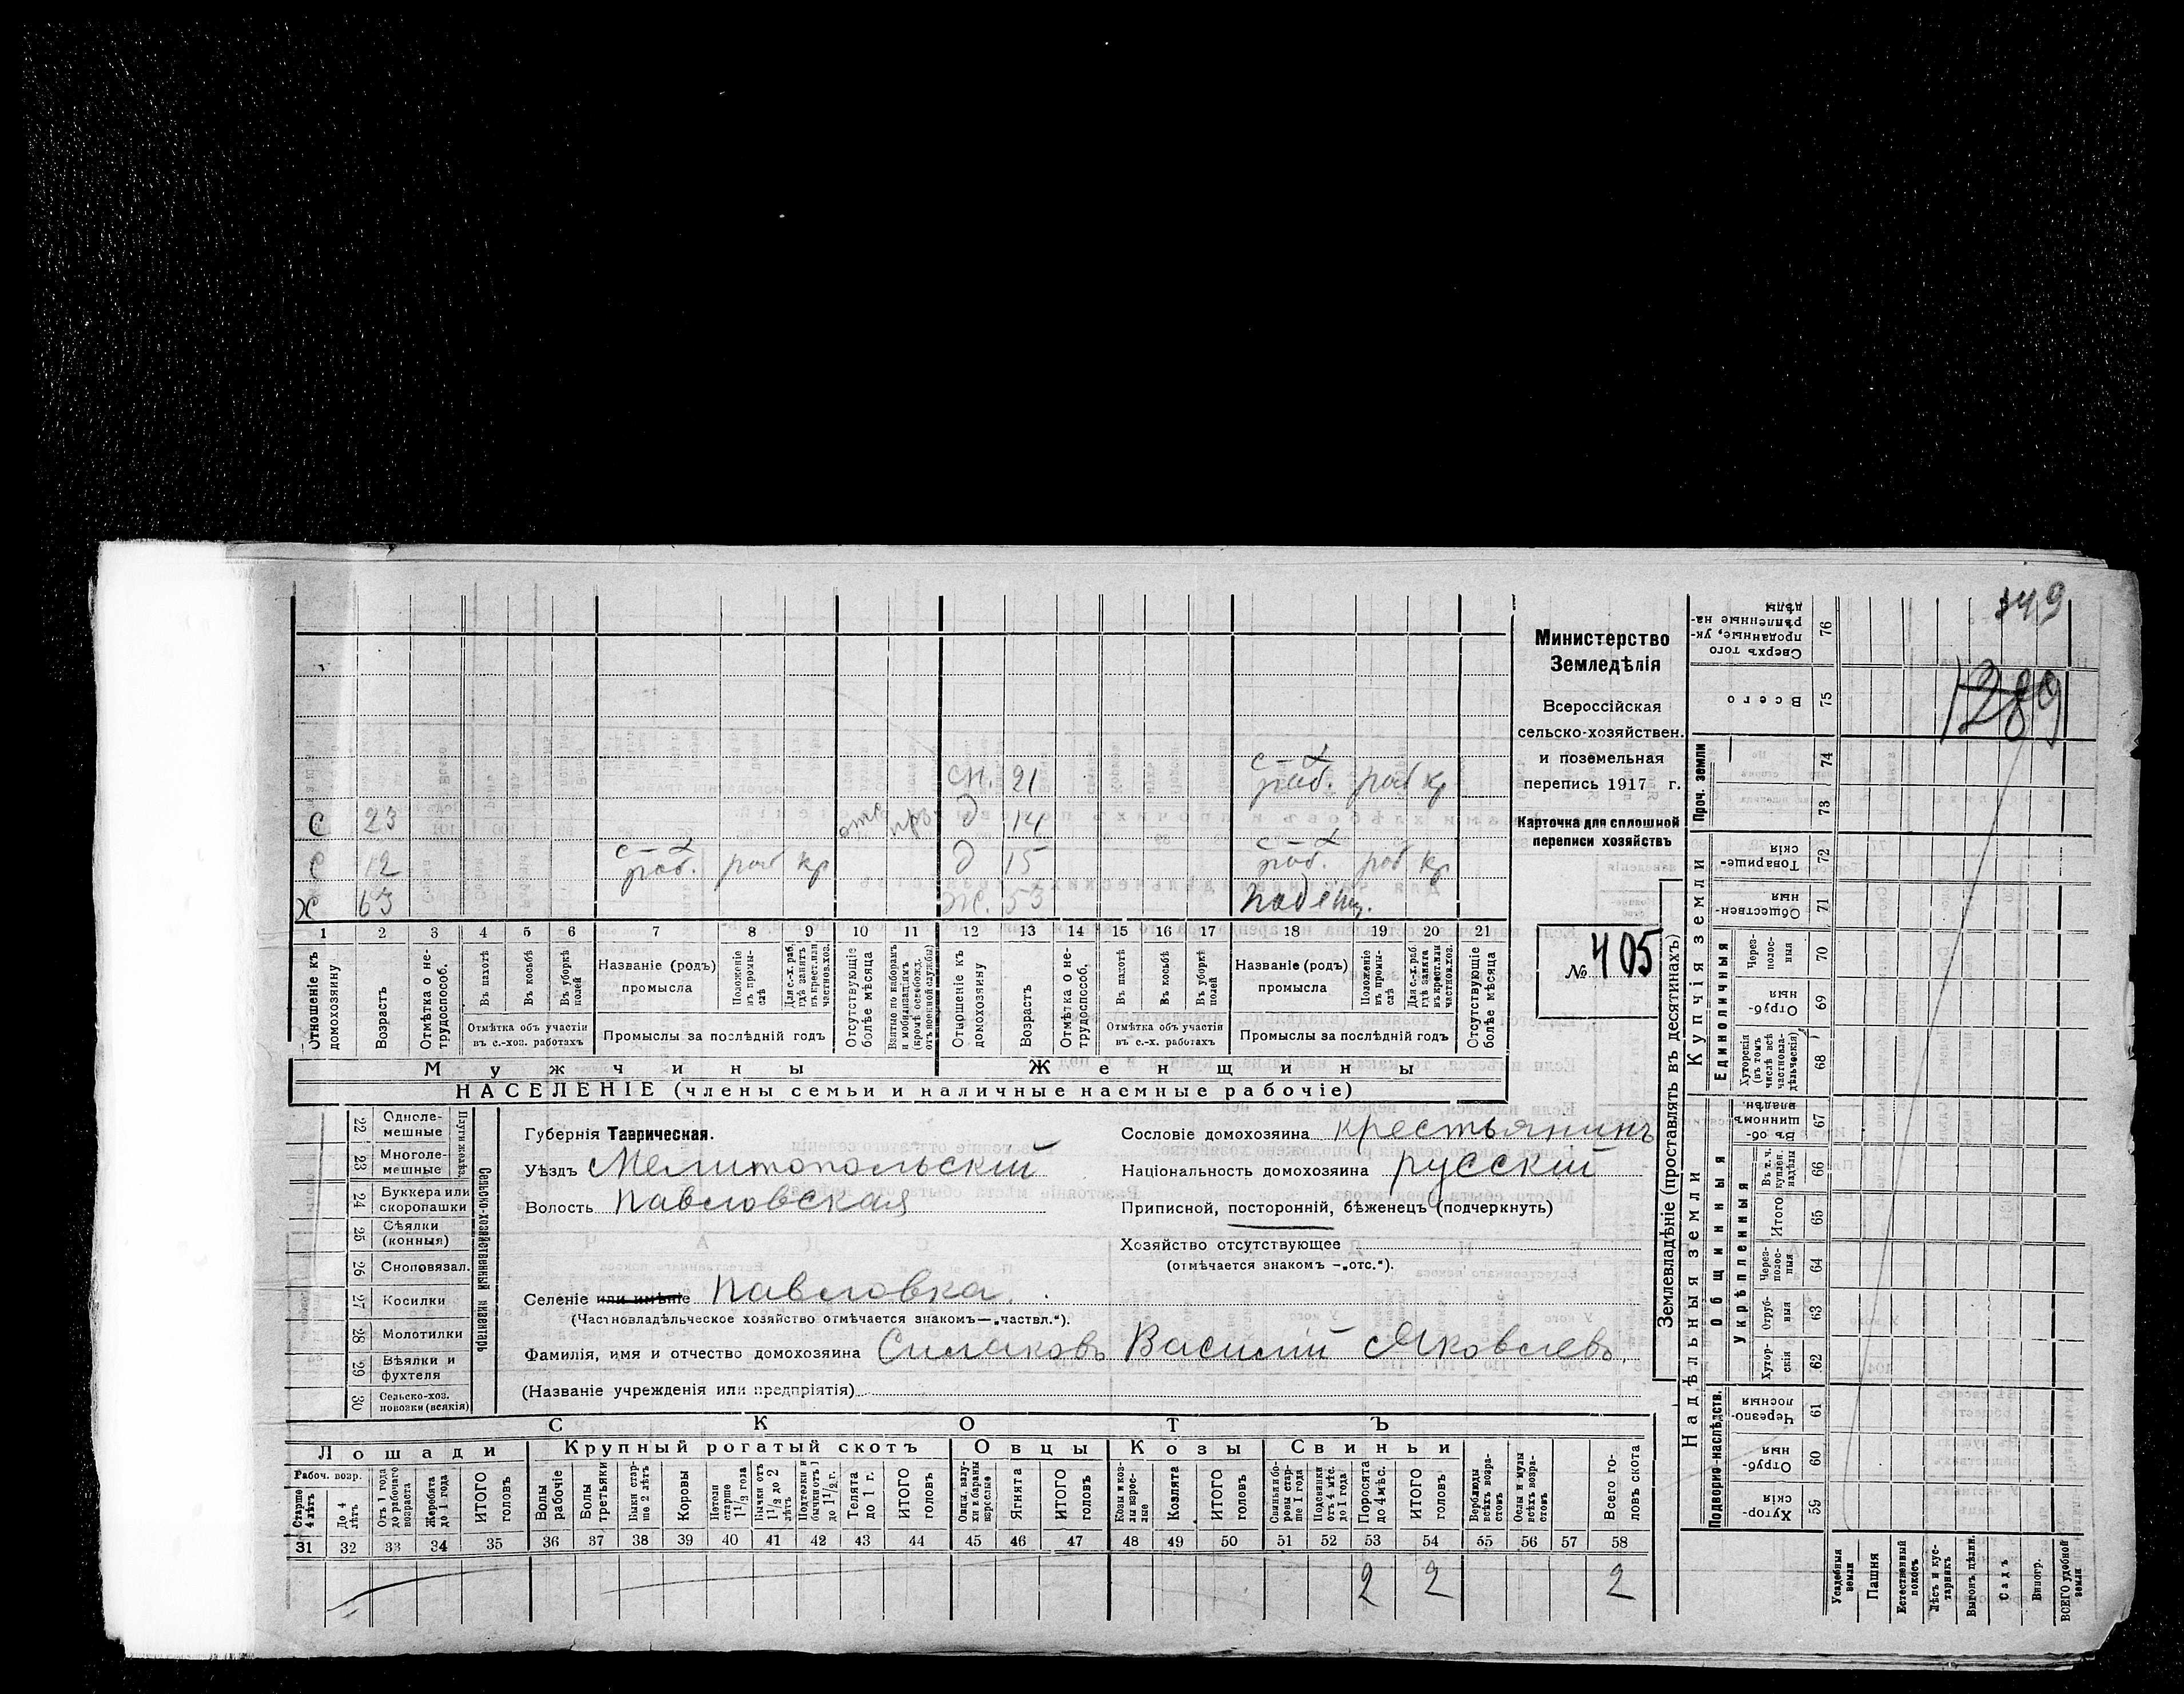 349
1289
сн. 21 с-х раб. раб кр
с 23 отс прз д 14
с 12 с-х раб. раб кр д 15 с-х раб. раб кр
х 63 ж. 53
1 2 3 4 5 6 7 8 9 10 11 12 13 14 15 16 17 18 19 20 21
Отношеніе къ домохозяину
Возрастъ
Отмѣтка о нетрудоспособ.
Въ пахотѣ
Въ косьбѣ
Въ уборкѣ полей
Отмѣтка объ участіи въ с.-хоз. работахъ
Названіе (родъ) промысла
Положеніе въ промыслѣ
Для с.-х. раб. гдѣ занятъ въ крест. или частнов. хоз.
Промыслы за послѣдній годъ
Отсутствующіе болѣе мѣсяца
Взятые по наборамъ и мобилизаціямъ (кромѣ освобожд. отъ военной службы)
Отношеніе къ домохозяину
Возрастъ
Отмѣтка о нетрудоспособ.
Въ пахотѣ
Въ косьбѣ
Въ уборкѣ полей
Отмѣтка объ участіи въ с.-х. работахъ
Названіе (родъ) промысла
Положеніе въ промыслѣ
Для с.-х. раб. гдѣ занята въ крест. или частнов. хоз.
Промыслы за послѣдній годъ
Отсутствующіе болѣе мѣсяца
Мужчины Женщины
НАСЕЛЕНІЕ (члены семьи и наличные наемные рабочіе)
Министерство
Земледѣлія
Всероссійская
сельско-хозяйствен.
и поземельная
перепись 1917 г.
Карточка для сплошной
переписи хозяйствъ
№ 405
Сельско-хозяйственный инвентарь
22 Одноле-мешные
23 Многоле-мешные
24 Буккера или скоропашки
25 Сѣялки (конныя)
26 Сноповязал.
27 Косилки
28 Молотилки
29 Вѣялки и фухтеля
30 Сельско-хоз. повозки (всякія)
Губернія Таврическая.
Уѣздъ Мелитопольскій
Волость Павловская
Селеніе или имѣніе Павловка.
(Частновладѣльческое хозяйство отмѣчается знакомъ—„частвл.“).
Фамилія, имя и отчество домохозяина Симаковъ Василій Яковлевъ
(Названіе учрежденія или предпріятія)
Сословіе домохозяина крестьянинъ
Національность домохозяина русскій
Приписной, посторонній, бѣженецъ (подчеркнуть)
Хозяйство отсутствующее
(отмѣчается знакомъ —„отс.“).
СКОТЪ
Лошади Крупный рогатый скотъ Овцы Козы Свиньи
Рабоч. возр.
Старше 4 лѣтъ
До 4 лѣтъ
Отъ 1 года до рабочаго возраста
Жеребята до 1 года
ИТОГО головъ
Волы рабочіе
Волы третьяки
Быки старше 2 лѣтъ
Коровы
Нетели старше 1 1/2 года
Бычки отъ 1 1/2 до 2 лѣтъ
Телята до 1 г.
ИТОГО головъ
Овцы, валухи и бараны взрослые
Ягнята
ИТОГО головъ
Козы и козлы взрослые
Козлята
ИТОГО головъ
Свиньи и боровы старше 1 года
Подсвинки отъ 4 мѣс. до 1 года
Поросята до 4 мѣс.
ИТОГО головъ
Верблюды всѣхъ возрастовъ
Ослы и мулы всѣхъ возрастовъ
Всего головъ скота
31 32 33 34 35 36 37 38 39 40 41 42 43 44 45 46 47 48 49 50 51 52 53 54 55 56 57 58
2 2 2
Землевладѣніе (проставлять въ десятинахъ)
Надѣльныя земли
Купчія земли
Проч. земли
Подворно-наслѣдств.
Общинныя
Укрѣпленныя
Единоличныя
Сверхъ того проданные, укрѣпленные надѣлы 76
Всего 75
74
73
Товарищескія 72
Общественныя 71
Черезполосныя 70
Отрубныя 69
Хуторскія (въ томъ числѣ всѣ частновладѣльческія) 68
Въ общинномъ владѣн. 67
Въ т. ч. куплен. надѣлы 66
Итого 65
Черезполосныя 64
Отрубныя 63
Хуторскія 62
Черезполосныя 61
Отрубныя 60
Хуторскія 59
Усадебныя земли
Пашня
Естественный покосъ
Лѣсъ и кустарникъ
Выгонъ, цѣлин.
Садъ
Виногр.
ВСЕГО удобной земли